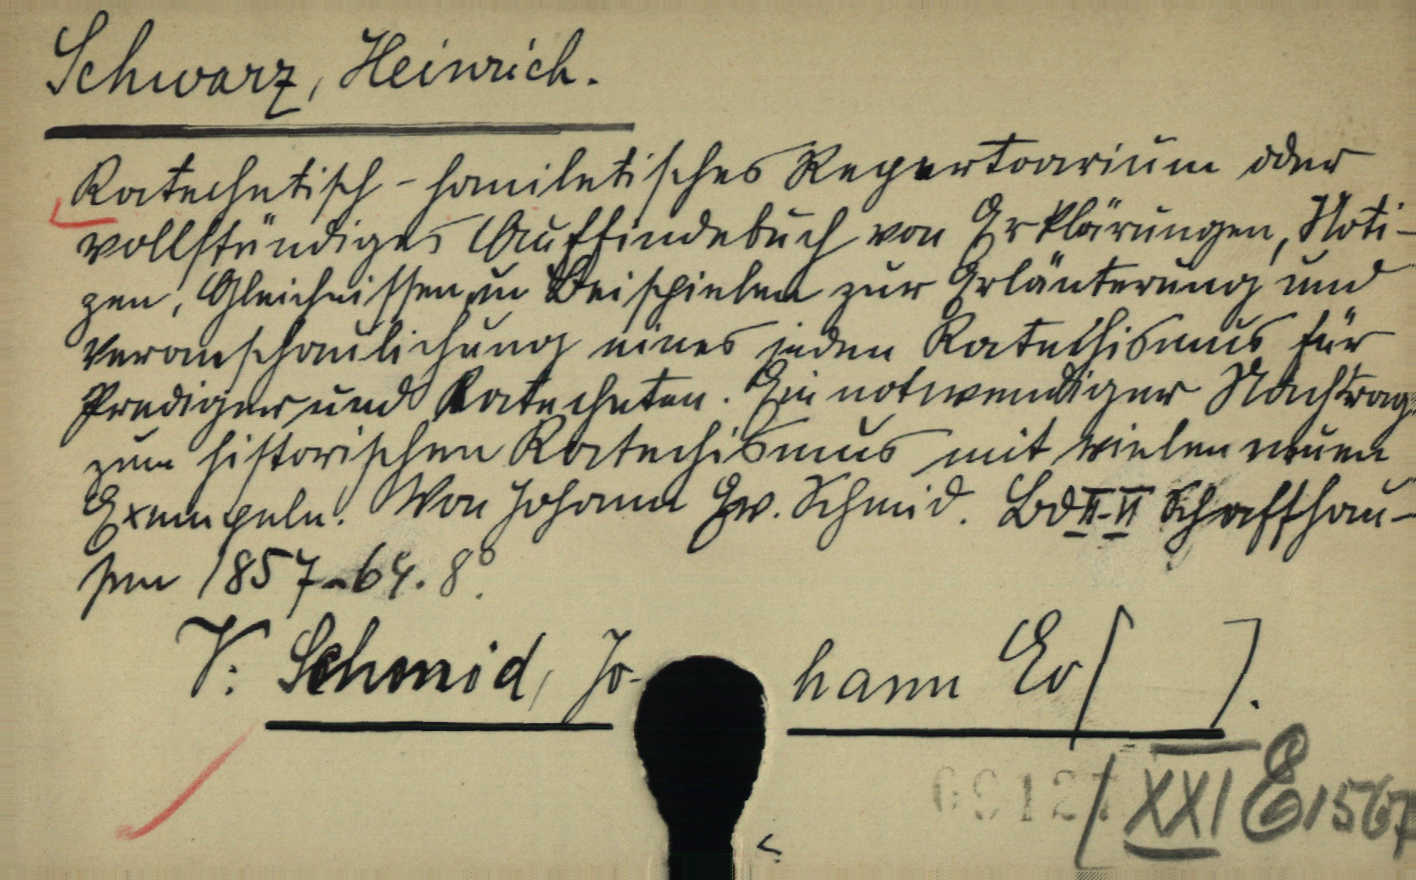 Schwarz, Heinrich.
Katechetisch-homiletisches Repertoarium oder
vollständiges Auffindebuch von Erklärungen, Noti-
zen, Gleichnissen, u Beispielen zur Erläuterung und
Veranschaulichung eines jeden Katechismus für
Prediger und Katecheten. Ein notwendiger Nachtrag
zum historischen Katechismus mit vielen neuen
Exempeln. Von Johann Ev. Schmid. Bd II-II Schaffhau-
sen 1857-64. 8°.
V: Schmid, Jo- hann Ev [ ].
[XXI E 1567